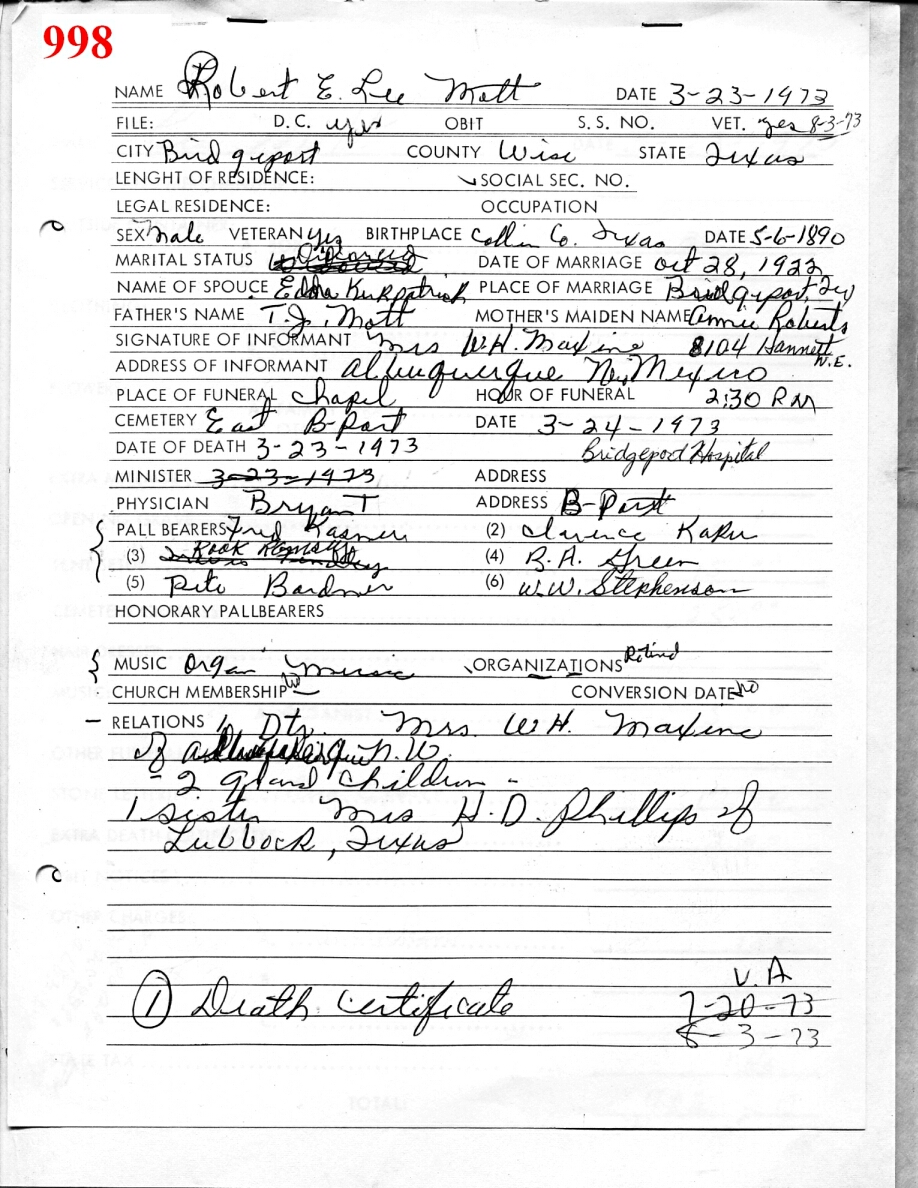 998
NAME Robert E. Lee Mott DATE 3-23-1973
FILE: D.C. yes OBIT S.S. NO. VET. yes 8-3-73
CITY Bridgeport COUNTY Wise STATE Texas
LENGHT OF RESIDENCE: SOCIAL SEC. NO.
LEGAL RESIDENCE: OCCUPATION
SEX Male VETERAN yes BIRTHPLACE Collin Co. Texas DATE 5-6-1890
MARITAL STATUS Divorced DATE OF MARRIAGE Oct 28, 1922
NAME OF SPOUCE Edda Kirkpatrick PLACE OF MARRIAGE Bridgeport, Tex
FATHER'S NAME T.J. Mott MOTHER'S MAIDEN NAME Annie Roberts
SIGNATURE OF INFORMANT Mrs W.H. Maxine 8104 Hannett N.E.
ADDRESS OF INFORMANT Albuquerque N. Mexico
PLACE OF FUNERAL Chapel HOUR OF FUNERAL 2:30 PM
CEMETERY East B-Port DATE 3-24-1973
DATE OF DEATH 3-23-1973 Bridgeport Hospital
MINISTER 3-23-1973 ADDRESS
PHYSICIAN Bryant ADDRESS B-Port
PALL BEARERS Fred (2) Clarence
(3) (4) B.A. Green
(5) Pete (6) W.W. Stephenson
HONORARY PALLBEARERS
MUSIC Organ Music ORGANIZATIONS Retired
CHURCH MEMBERSHIP no CONVERSION DATE no
RELATIONS 1 Dtr. Mrs. W.H. Maxine
of
- 2 grand children -
1 sister Mrs H.D. Phillips of
Lubbock, Texas
V.A
1 Death Certificate 7-20-73
8-3-73
TOTAL